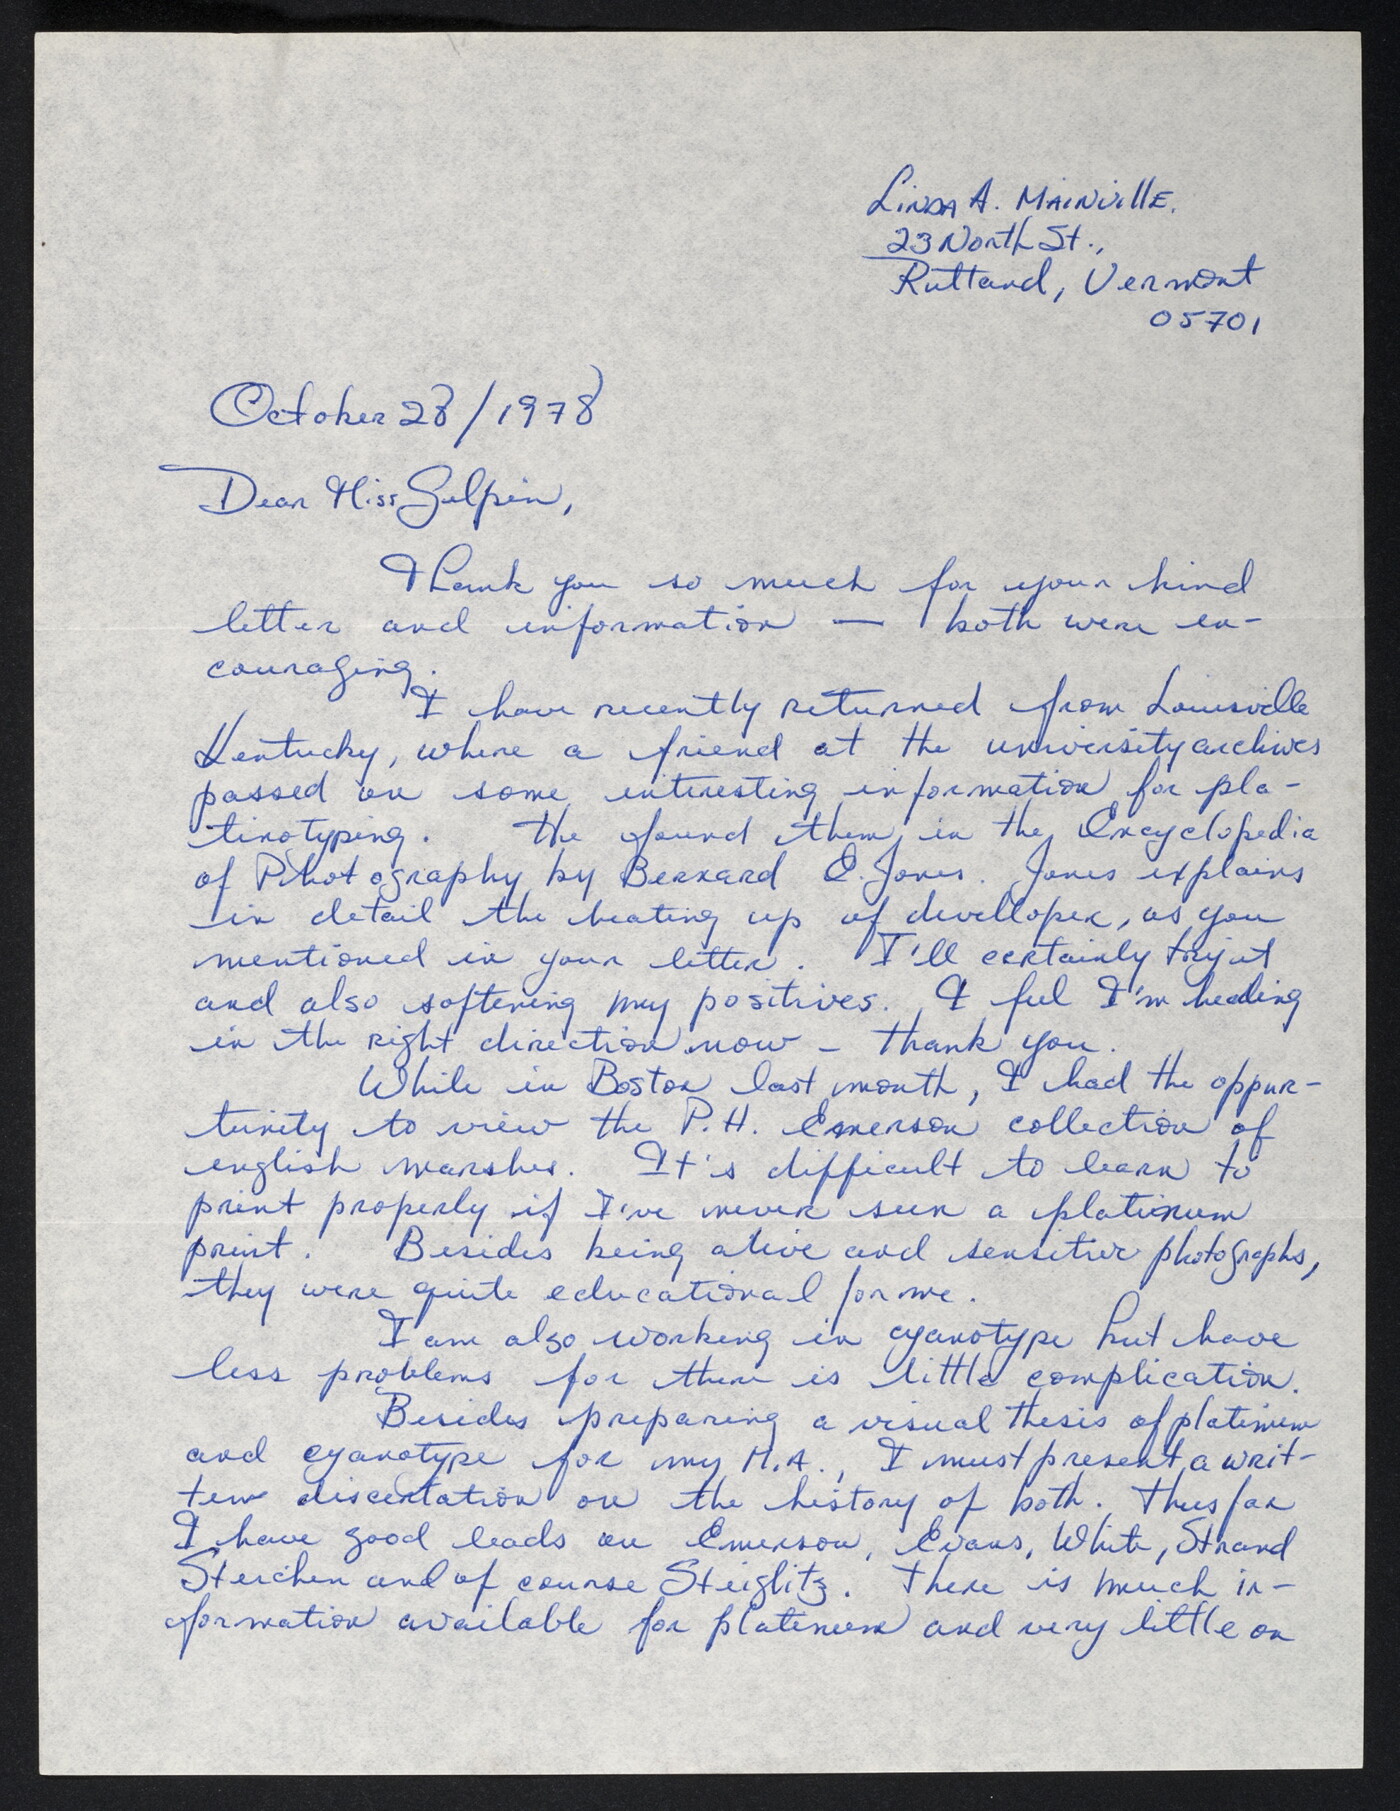 Linda A. Mainville.
23 North St.,
Rutland, Vermont
05701
October 28/1978
Dear Miss Gilpin,
Thank you so much for your kind
letter and information — both were en-
couraging.
I have recently returned from Louisville
Kentucky, where a friend at the university archives
passed on some interesting information for pla-
tinotyping. He found them in the Encyclopedia
of Photography by Bernard E. Jones. Jones explains
in detail the heating up of developer, as you
mentioned in your letter. I'll certainly try it
and also softening my positives. I feel I'm heading
in the right direction now – thank you.
While in Boston last month, I had the oppur-
tunity to view the P. H. Emerson collection of
english marshes. It's difficult to learn to
print properly if I've never seen a platinum
print. Besides being alive and sensitive photographs,
they were quite educational for me.
I am also working in cyanotype but have
less problems for there is little complication.
Besides preparing a visual thesis of platinum
and cyanotype for my M.A., I must present a writ-
ten discertation on the history of both. Thus far
I have good leads on Emerson, Evans, White, Strand
Steichen and of course Steiglitz. There is much in-
formation available for platinum and very little on